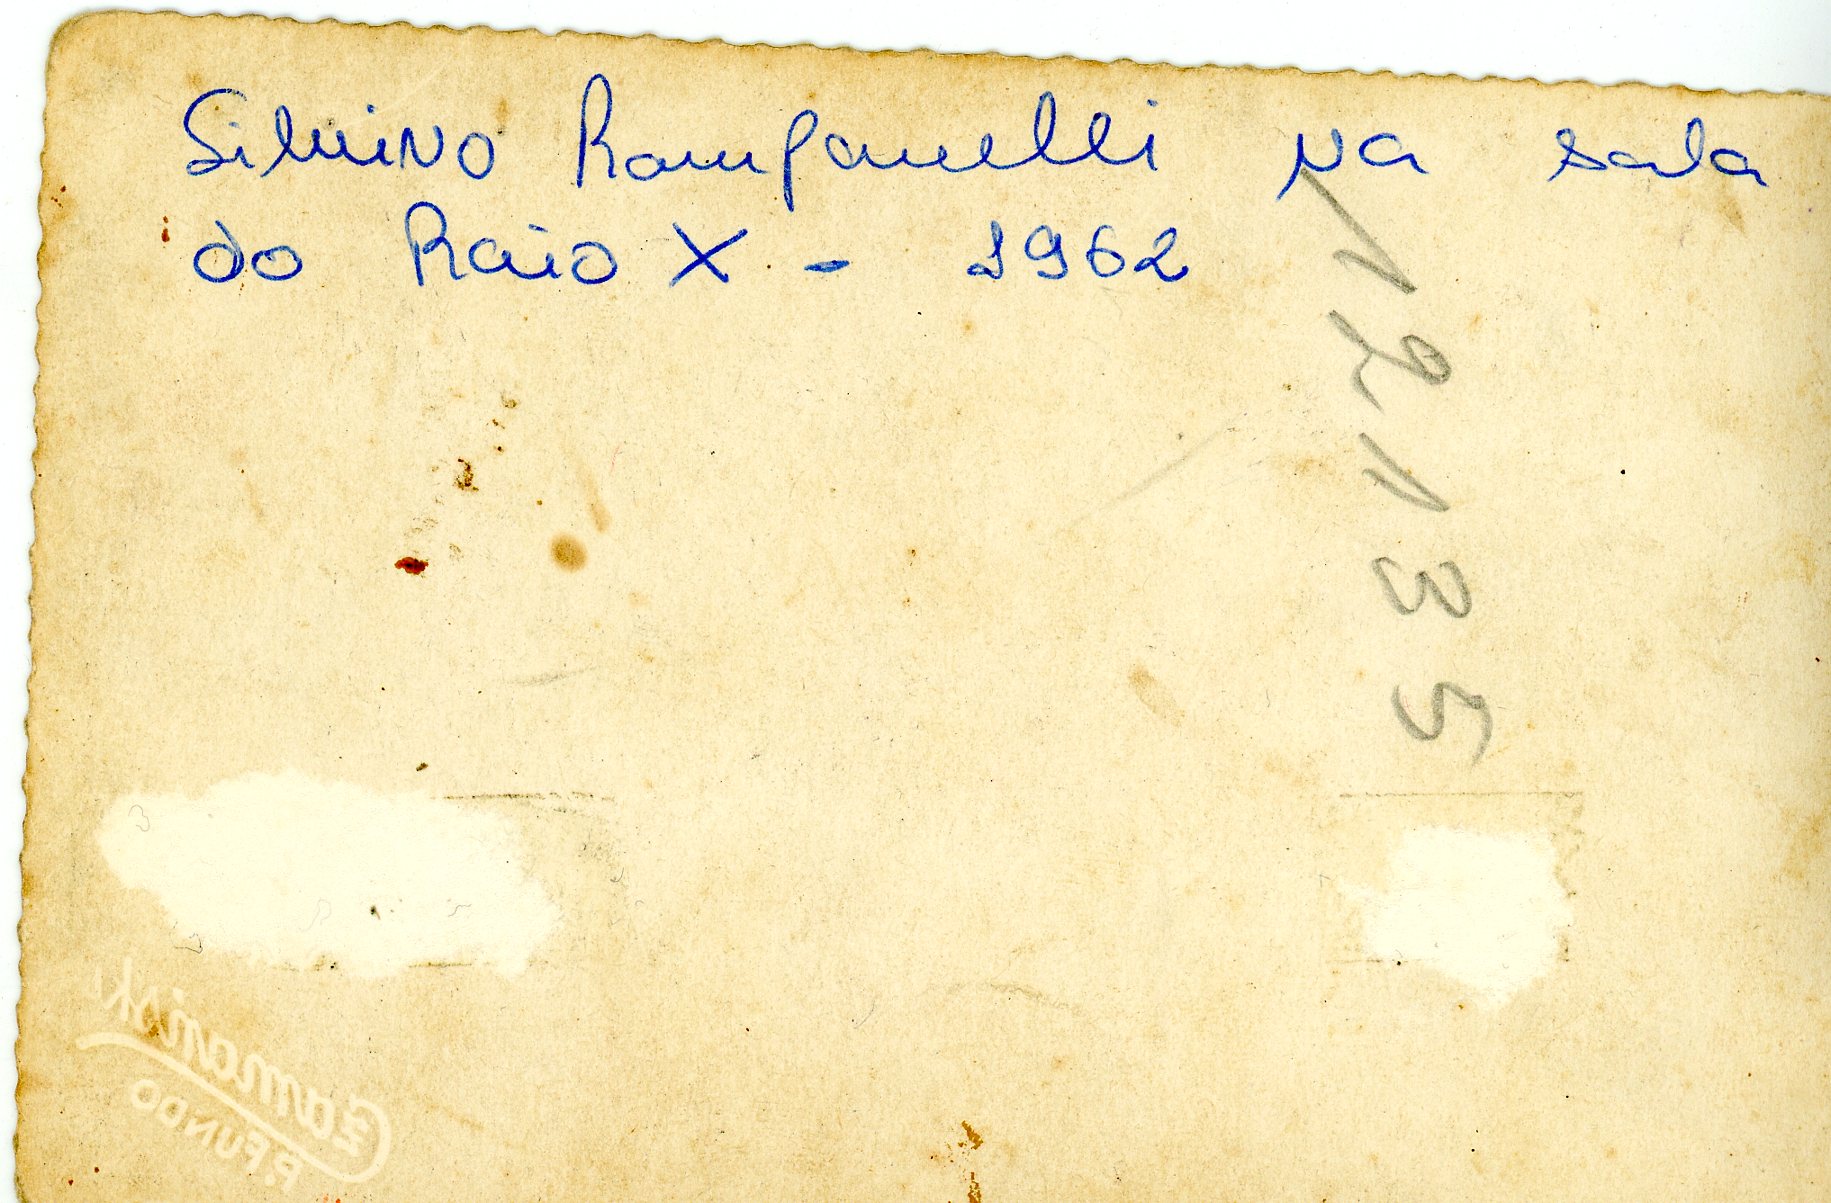 Silvino Rampanelli na sala
do Raio X - 1962
12135
Czamanski
P. FUNDO